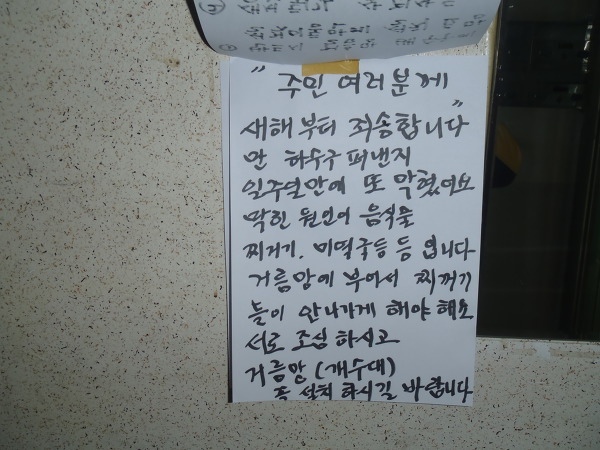 " 주민 여러분께 "
새해부터 죄송합니다
만 하수구 퍼낸지
일주일만에 또 막혔어요
막힌 원인이 음식물
찌거기. 미역국등 등 입니다
거름망에 부어서 찌꺼기
들이 안나가게 해야 해요
서로 조심 하시고
거름망 (개수대)
좀 설치 하시길 바랍니다